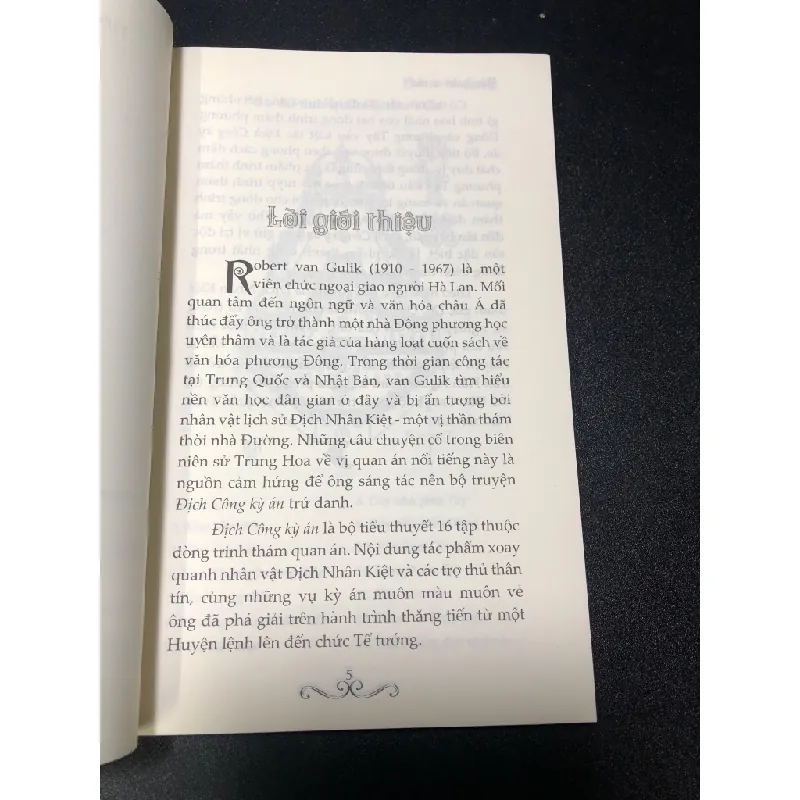 Lời giới thiệu
Robert van Gulik (1910 - 1967) là một
viên chức ngoại giao người Hà Lan. Mối
quan tâm đến ngôn ngữ và văn hóa châu Á đã
thúc đẩy ông trở thành một nhà Đông phương học
uyên thâm và là tác giả của hàng loạt cuốn sách về
văn hóa phương Đông. Trong thời gian công tác
tại Trung Quốc và Nhật Bản, van Gulik tìm hiểu
nền văn học dân gian ở đây và bị ấn tượng bởi
nhân vật lịch sử Địch Nhân Kiệt - một vị thần thám
thời nhà Đường. Những câu chuyện cổ trong biên
niên sử Trung Hoa về vị quan án nổi tiếng này là
nguồn cảm hứng để ông sáng tác nên bộ truyện
Địch Công kỳ án trứ danh.
Địch Công kỳ án là bộ tiểu thuyết 16 tập thuộc
dòng trinh thám quan án. Nội dung tác phẩm xoay
quanh nhân vật Địch Nhân Kiệt và các trợ thủ thân
tín, cùng những vụ kỳ án muôn màu muôn vẻ
ông đã phá giải trên hành trình thăng tiến từ một
Huyện lệnh lên đến chức Tể tướng.
5